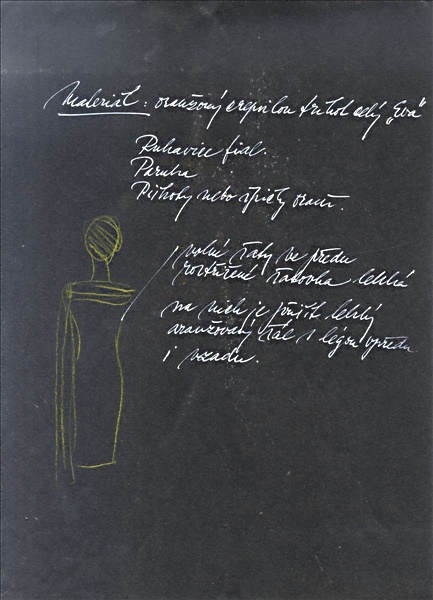 Materiál: oranžový crepsilon trikot celý „Eva"
Rukavice fial.
Paruka
Piškoty nebo špičky oranž.
volné šaty ve předu
rozstřižené šatovka lehká
na nich je přišit lehký
oranžový šál s légou vpředu
i vzadu.